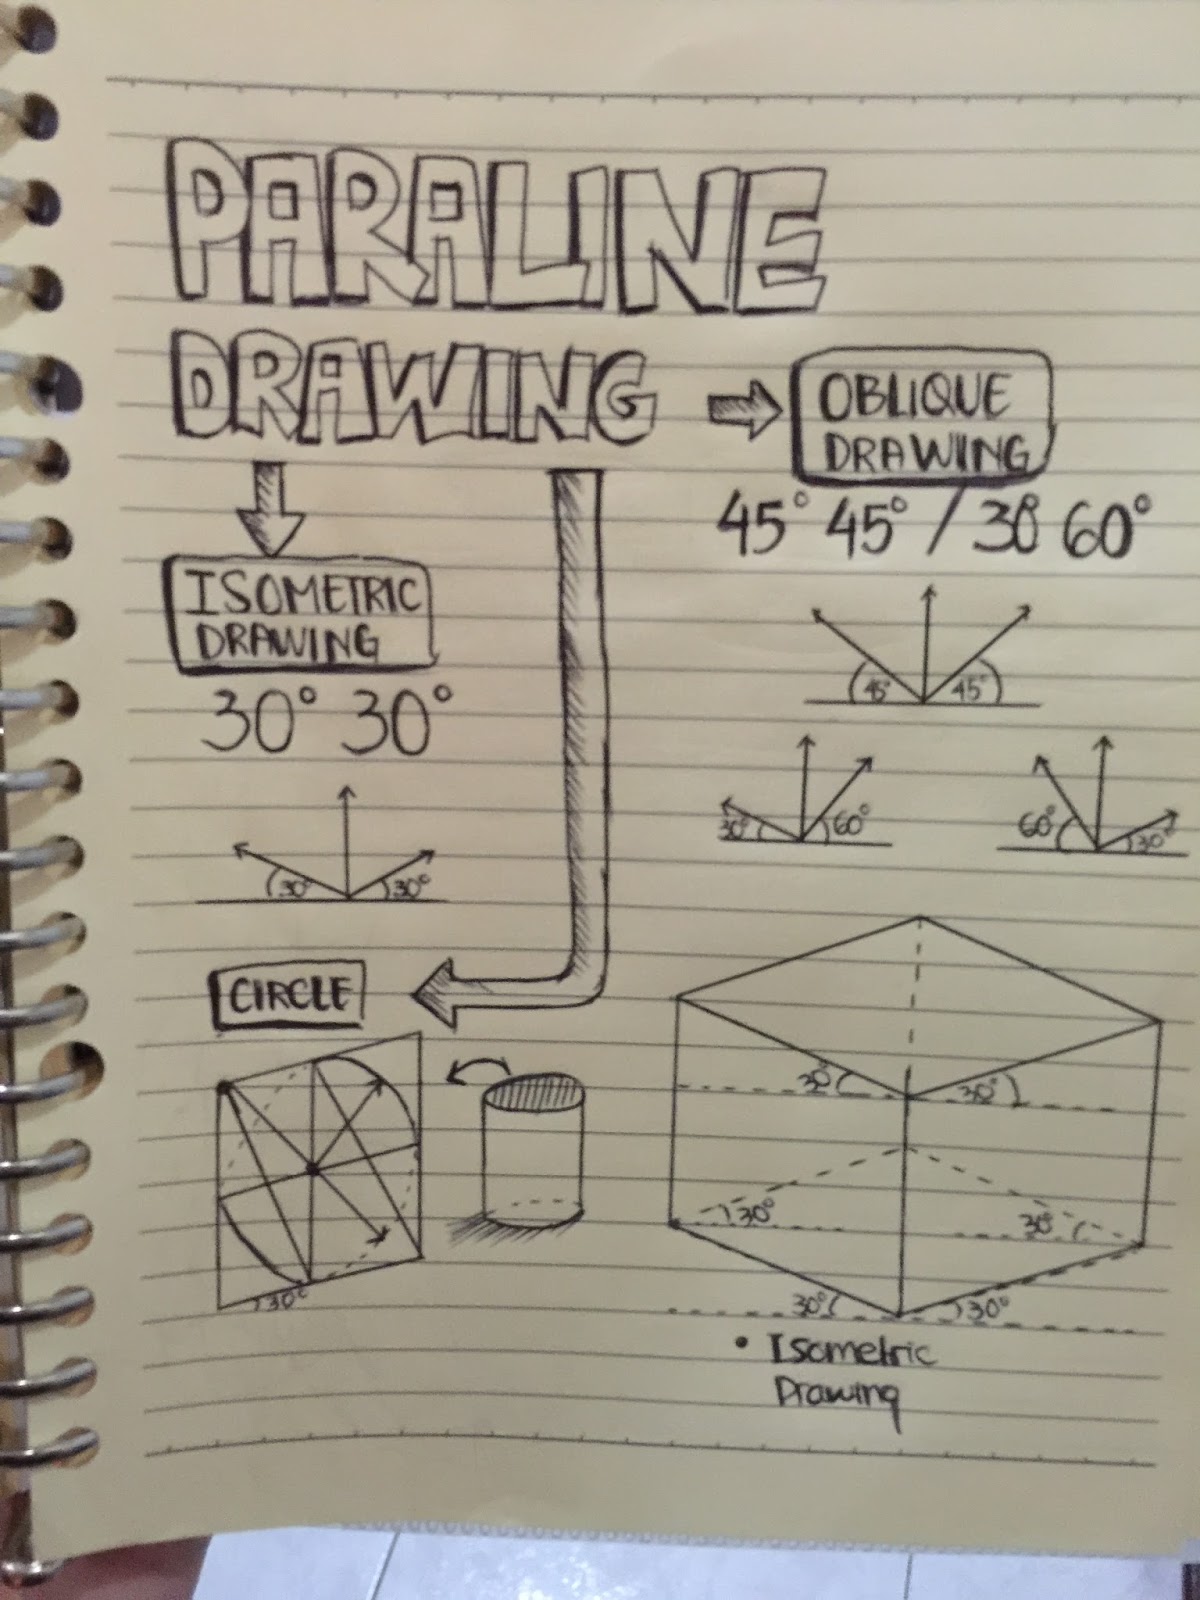 PARALINE
DRAWING
OBLIQUE
DRAWING
45° 45° / 30° 60°
ISOMETRIC
DRAWING
30° 30°
45° 45°
30° 60°
60° 30°
30° 30°
CIRCLE
30° 30°
30° 30°
30°
30° 30°
• Isometric
Drawing